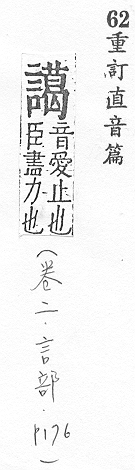 62重訂直音篇
譪
音愛止也
臣盡力也
(卷二．言部．P176)